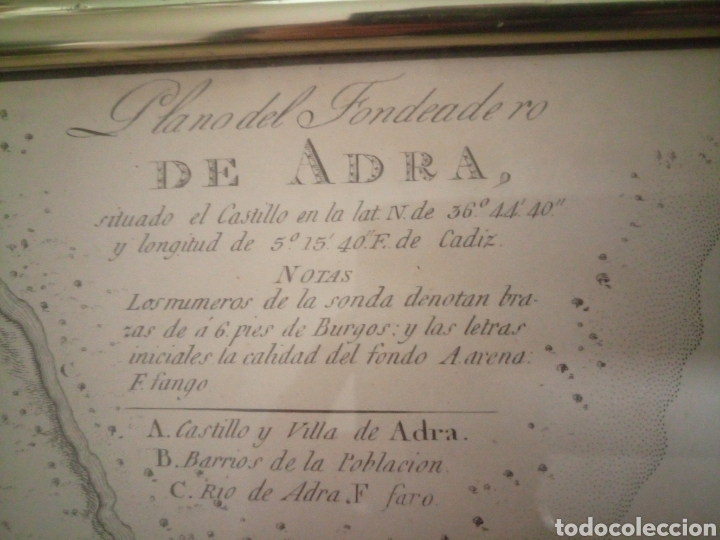 Plano del Fondeadero
DE ADRA,
situado el Castillo en la lat. N. de 36.º 44'. 40".
y longitud de 5.º 15'. 40". E. de Cadiz.
NOTAS
Los numeros de la sonda denotan bra-
zas de á 6. pies de Burgos: y las letras
iniciales la calidad del fondo A. arena:
F. fango
A. Castillo y Villa de Adra.
B. Barrios de la Poblacion.
C. Rio de Adra. F faro.
C
todocoleccion
todocoleccion.net